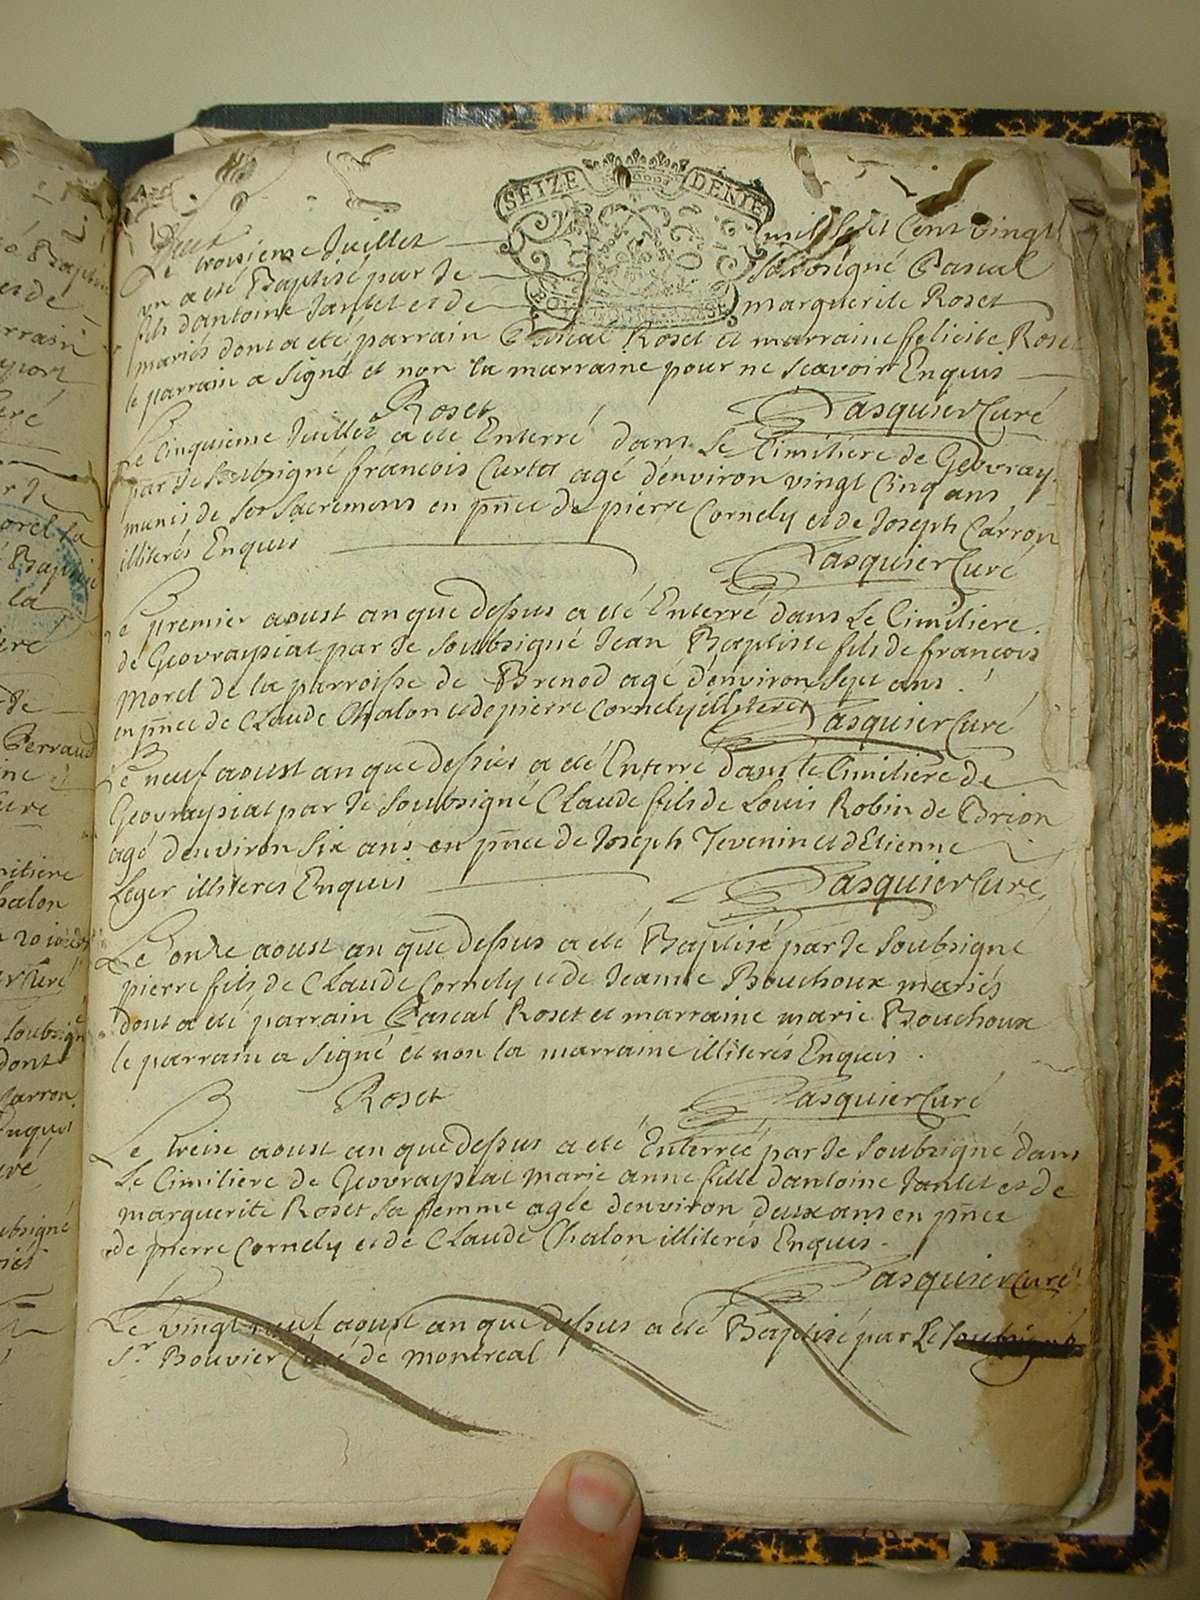 SEIZE DENIE
Le troisieme Juillet mil sept Cent vingt
un a eté Baptisé par Je soubsigné Pascal
fils dantoine Jantet et de marguerite Roset
mariés dont a eté parrain Pascal Roset et marraine felicite Roset
le parrain a signé et non la marraine pour ne scavoir Enquis
Roset Pasquier Curé
Le Cinquieme Juillet a eté Enterré dans Le Cimitiere de Geovray
par Je soubsigné francois Curta agé denviron vingt Cinq ans
munis de ses sacremens en pnce de pierre Cornely et de Joseph Carron
illiterés Enquis
Pasquier Curé
Le premier aoust an que dessus a eté Enterré dans Le Cimitiere
de Geovraysiat par Je soubsigné Jean Baptiste fils de francois
Morel de la parroisse de Brenod agé denviron sept ans
en pnce de Claude Chalon et de pierre Cornely illiteres Pasquier Curé
Le neuf aoust an que dessus a eté Enterré dans le Cimitiere de
Geovraysiat par Je soubsigné Claude fils de Louis Robin de Brion
agé denviron six ans en pnce de Joseph Tevenin et dEtienne
Leger illiteres Enquis Pasquier Curé
Le onze aoust an que dessus a eté Baptisé par Je soubsigné
pierre fils de Claude Cornely et de Jeanne Bouchoux mariés
dont a eté parrain Pascal Roset et marraine marie Bouchoux
le parrain a signé et non la marraine illiterés Enquis
Roset Pasquier Curé
Le treise aoust an que dessus a eté Enterrée par Je soubsigné dans
Le Cimitiere de Geovraysiat marie anne fille dantoine Jantet et de
marguerite Roset sa femme agée denviron deux ans en pnce
de pierre Cornely et de Claude Chalon illiterés Enquis
Pasquier Curé
Le vingt neuf aoust an que dessus a eté Baptisé par Le soubsigné
Sr Bouvier Curé de montreal